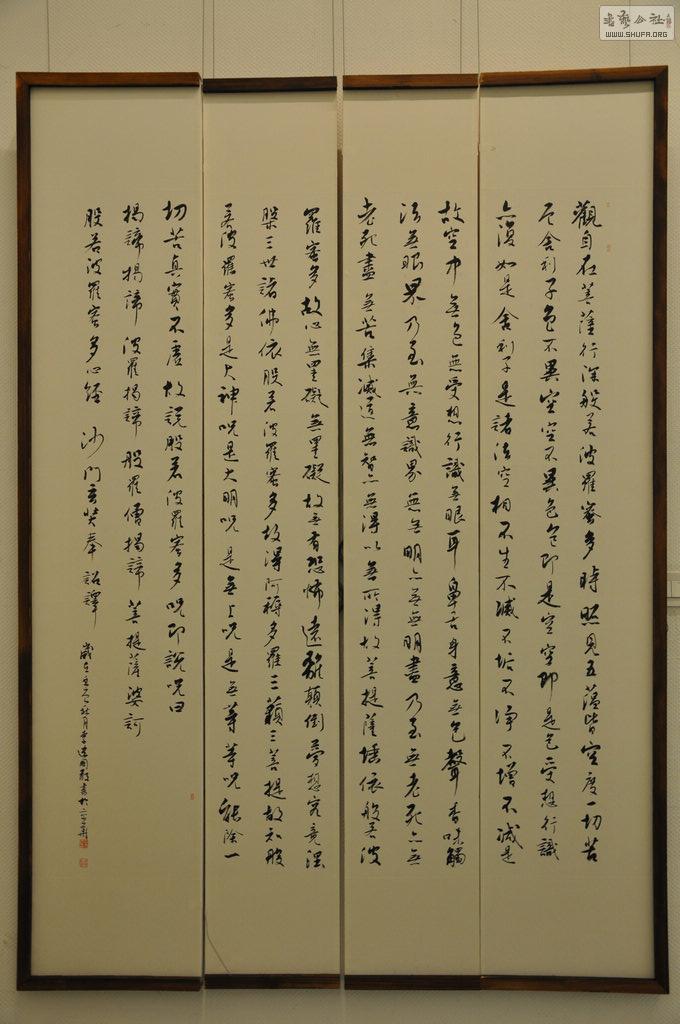 觀自在菩薩行深般若波羅蜜多時照見五蘊皆空度一切苦
厄舍利子色不異空空不異色色即是空空即是色受想行識
亦復如是舍利子是諸法空相不生不滅不垢不淨不增不減是
故空中無色無受想行識無眼耳鼻舌身意無色聲香味觸
法無眼界乃至無意識界無無明亦無無明盡乃至無老死亦無
老死盡無苦集滅道無智亦無得以無所得故菩提薩埵依般若波
羅蜜多故心無罣礙無罣礙故無有恐怖遠離顛倒夢想究竟涅
槃三世諸佛依般若波羅蜜多故得阿耨多羅三藐三菩提故知般
若波羅蜜多是大神咒是大明咒是無上咒是無等等咒能除一
切苦真實不虛故說般若波羅蜜多咒即說咒曰
揭諦揭諦波羅揭諦般羅僧揭諦菩提薩婆訶
般若波羅蜜多心經 沙門玄奘奉詔譯
歲在 秋月 書於
WWW.SHUFA.ORG